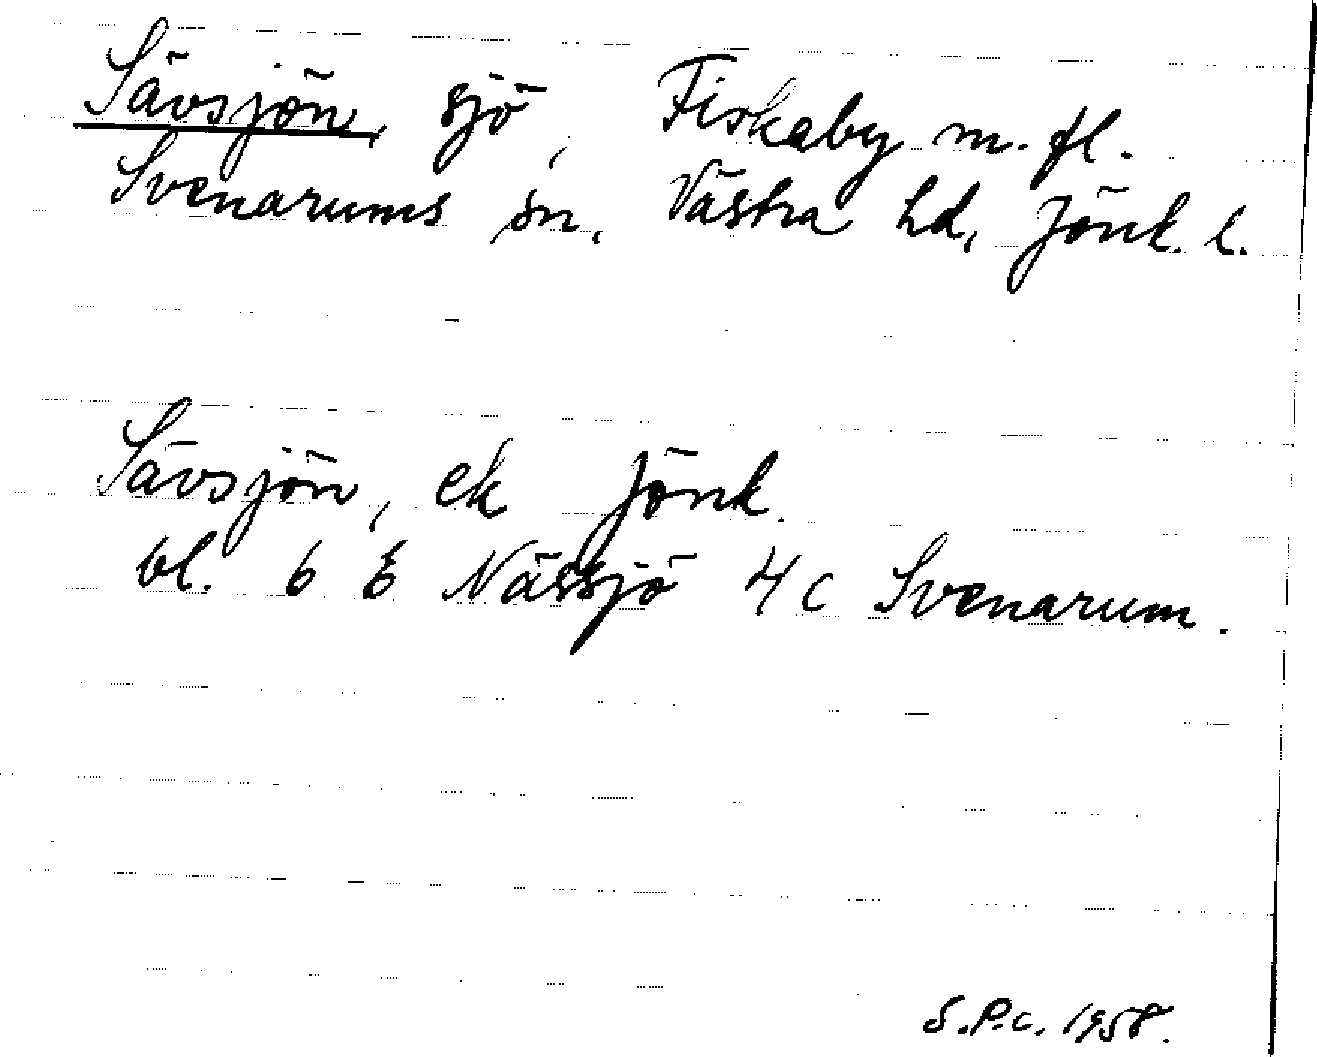 Sävsjön, sjö, Fiskaby m. fl.
Svenarums sn, Västra hd, Jönk. l.
Sävsjön, ek Jönk.
bl. 6 E Nässjö 4 c Svenarum.
S.P.C. 1958.